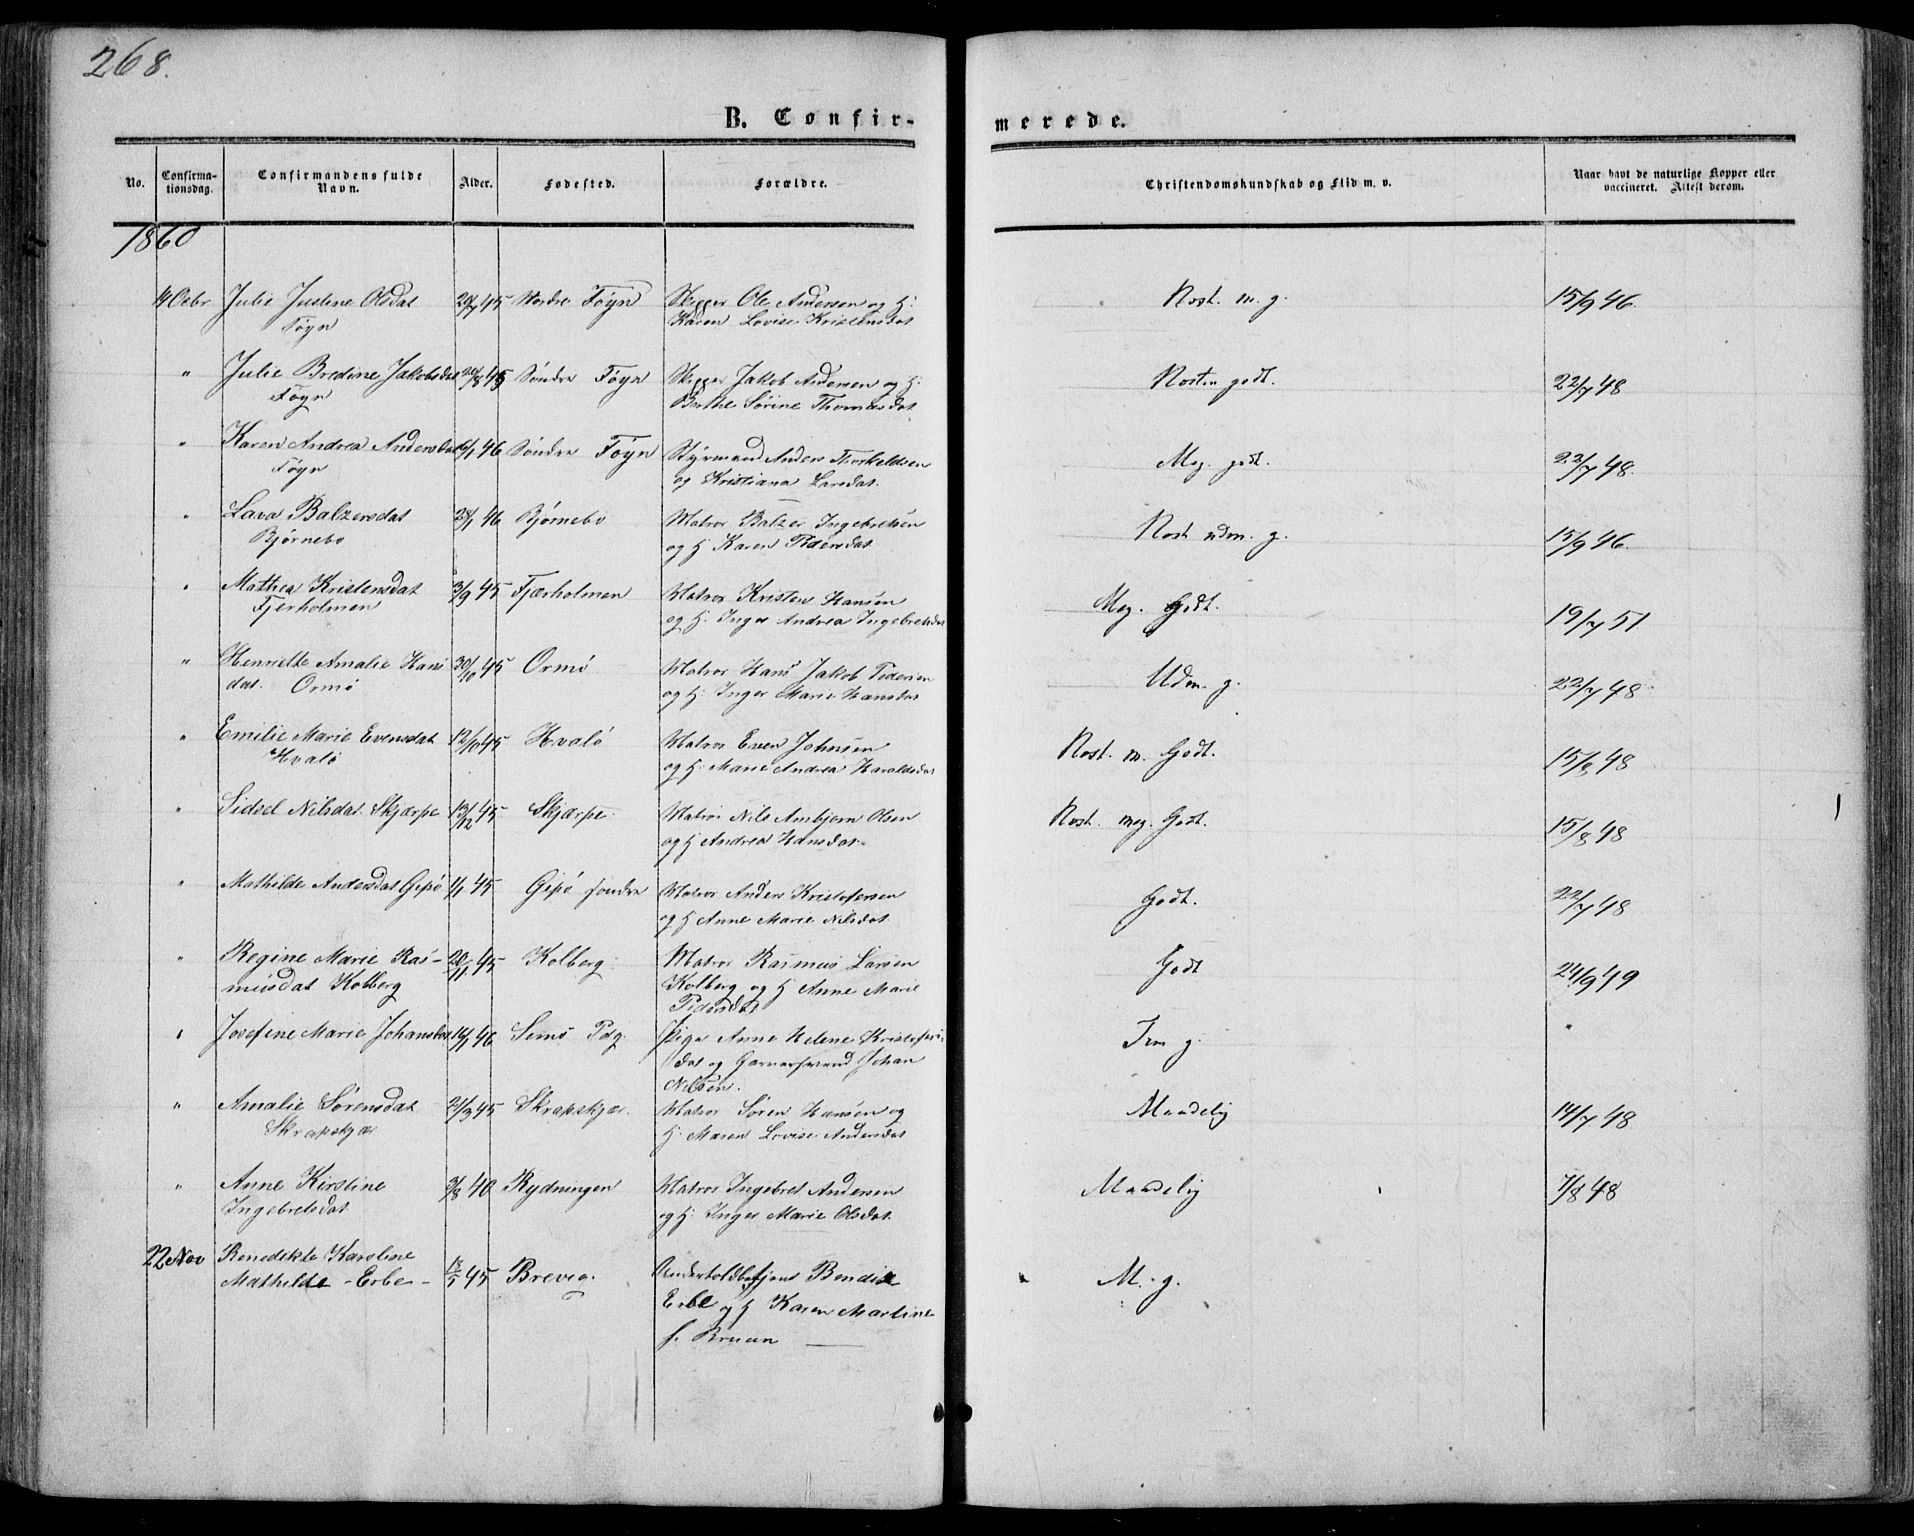 268.
B. Confir-
merede.
No.
Confirma-
tionsdag.
Confirmandens fulde
Navn.
Alder.
Fødested.
Forældre.
Christendomskundskab og Flid m. v.
Naar havt de naturlige Kopper eller
vaccineret. Attest derom.
1860
Octbr Julie Justine Olsdat 45 Nordre Føyn Skipper Ole Andersen og H: Nost. m. g. 15/9 46.
Føyn Karen Lovise Kristensdat
" Julie Bredine Jakobsdat 45 Søndre Føyn Skipper Jakob Andersen og H: godt. 22/7 48
Føyn Berthe Sørine Thomasdat
" Karen Andrea Andersdat 46 Søndre Føyn Styrmand Anders Thorkeldsen Meg. godt. 22/7 48.
Føyn og Kristiana Larsdat.
" Balzersdat 46 Bjørnebo Matros Balzer Ingebretsen Nost udm. g. 15/9 46.
Bjørnebo og H Karen Pedersdat
" Mathea Kristensdat 3/9 45 Fjærholmen Matros Kristen Hansen Meg. Godt. 19/7 51
Fjerholmen og H. Inger Andrea Ingebretsdat
" Henriette Amalie Hans 30/10 45 Ormø Matros Hans Jakob Pedersen Udm. g. 22/7 48
dat. Ormø og H: Inger Marie Hansdat
" Emilie Marie Evensdat 45 Hvalø Matros Even Johnsen Nost. m. Godt. 15/8 48
Hvalø og H. Marie Andrea Haraldsdat
" Sidsel Nilsdat. Skjærpe 13/12 45 Skjærpe. Matros Nils Ambjørn Olsen Nost. meg. Godt. 15/8 48
og H Andrea Hansdat.
" Mathilde Andersdat Gipø 45 Gipø søndre Matros Anders Kristofersen Godt. 22/7 48
og H Anne Marie Nilsdat
" Regine Marie Ras- 20/11 45 Kolberg Matros Rasmus Larsen Godt 24/9 49
musdat Kolberg Kolberg og H Anne Marie
Pedersdat
" Josefine Marie Johansdat 46 Semø Pdg. Pige Anne Helene Kristofers- g. "
dat og Johan
Nilsen.
" Amalie Sørensdat 21/3 45 Skrapskjær. Matros Søren Hansen og Maadelig 14/7 48
Skrapskjær H. Maren Lovise Andersdat
" Anne Kirstine 3/8 40 Rydningen Matros Ingebret Andersen Maadelig 7/8 48
Ingebretsdat og H. Inger Marie Olsdat.
22 Nov Benedikte Karoline
Mathilde - Erbe - 18/5 45 Brevig. Bendix M. g.
Erbe og H Karen Martine
f. Bruun